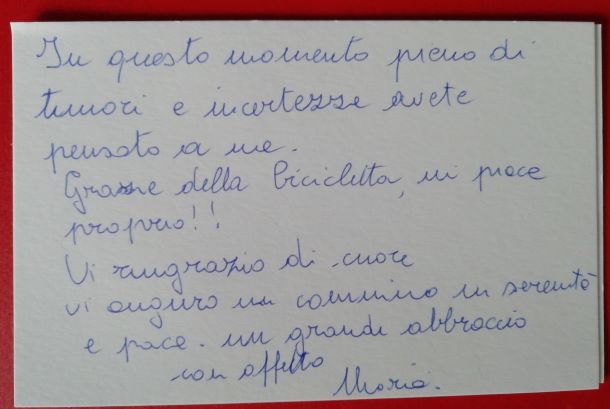 In questo momento pieno di
timori e incertezze avete
pensato a me.
Grazie della bicicletta, mi piace
proprio!!
Vi ringrazio di cuore
vi auguro un cammino in serenità
e pace. un grande abbraccio
con affetto
Maria.